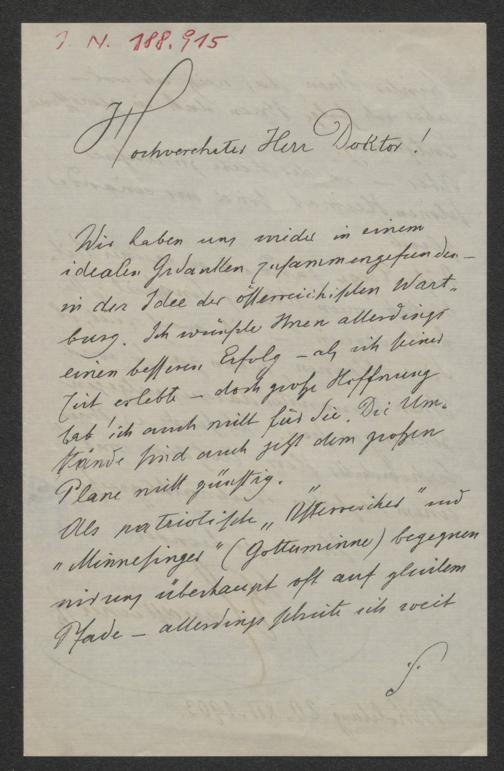 J. N. 188.915
Hochverehrter Herr Doktor!
Wir haben uns wieder in einem
idealen Gedanken zusammengefunden –
in der Idee der österreichischen Wart-
burg. Ich wünschte Ihnen allerdings
einen besseren Erfolg – als ich seiner
Zeit erlebte – doch große Hoffnung
hab' ich auch nicht für Sie. Die Um-
stände sind auch jetzt dem großen
Plane nicht günstig.
Als patriotische „Österreicher" und
„Minnesinger" (Gottesminne) begegnen
wir uns überhaupt oft auf gleichem
Pfade – allerdings schreite ich weit